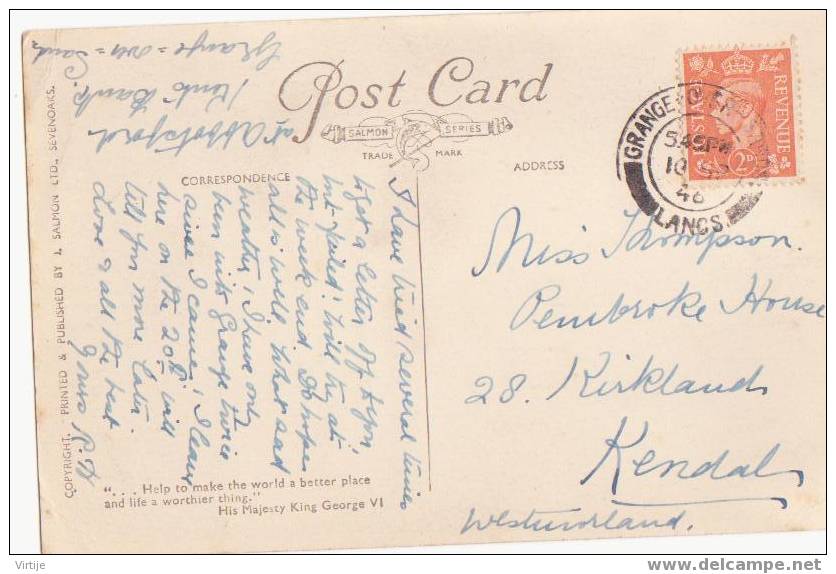 Post Card
SALMON SERIES
TRADE MARK
CORRESPONDENCE
ADDRESS
at Abbotsford
Kents Bank.
Grange = over = Sands
I have tried several times
to get a letter off to you,
but failed! Will try at
the week end. Do hope
all is well. What sad
weather; I have only
been into Grange twice
since I came; I leave
here on the 20th will
tell you more later.
Love & all the best
Yours R.H
". . . Help to make the world a better place
and life a worthier thing."
His Majesty King George VI
COPYRIGHT. PRINTED & PUBLISHED BY J. SALMON LTD., SEVENOAKS.
POSTAGE REVENUE
2D
GRANGE-OVER-SANDS
5.45PM
10
46
LANCS.
Miss Thompson.
Pembroke House
28. Kirkland
Kendal
Westmorland.
Virtije
delcampe.net